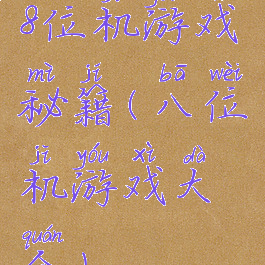 8位机游戏
mì jí bā wèi
秘籍(八位
jī yóu xì dà
机游戏大
quán
全)